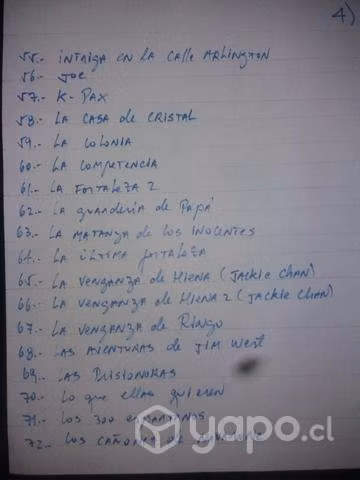 4)
55.- INTRIGA EN LA CALLE ARLINGTON
56.- JOE
57.- K-PAX
58.- LA CASA de CRISTAL
59.- LA COLONIA
60.- LA COMPETENCIA
61.- LA FORTALEZA 2
62.- LA guardería de Papá
63.- LA MATANZA de LOS INOCENTES
64.- LA ÚLTIMA fortaleza
65.- LA VENGANZA de HIENA (JACKIE CHAN)
66.- LA VENGANZA de HIENA 2 (JACKIE CHAN)
67.- LA VENGANZA de RINGO
68.- LAS AVENTURAS de JIM West
69.- LAS PRISIONERAS
70.- Lo que ellas quieren
71.- LOS 300 ESPARTANOS
72.- LOS CAÑONES DE NAVARONE
yapo.cl